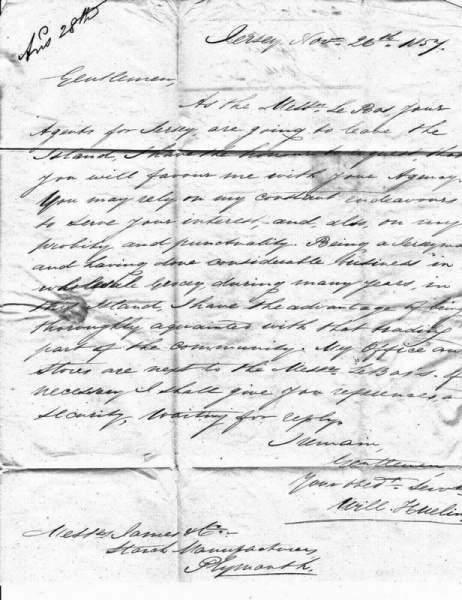 Ans 28th
Jersey, Nov. 26th 1857.
Gentlemen,
As the Messrs. Le Bas, your
Agents for Jersey, are going to leave the
Island, I have the honour to request that
you will favour me with your Agency.
You may rely on my constant endeavours
to serve your interest, and, also, on my
probity and punctuality. Being a Jerseyma
and having done considerable business in
wholesale Grocery, during many years, in
the Island, I have the advantage of being
throughly aquainted with that trading
part of the community. My Office an
Stores are next to the Messrs Le Bas's. If
necessary I shall give you references, a
security, Waiting for reply.
I remain
Gentlemen
Your obedt. Serv
Will
Messrs James & Co.
Starch Manufacturers
Plymouth.